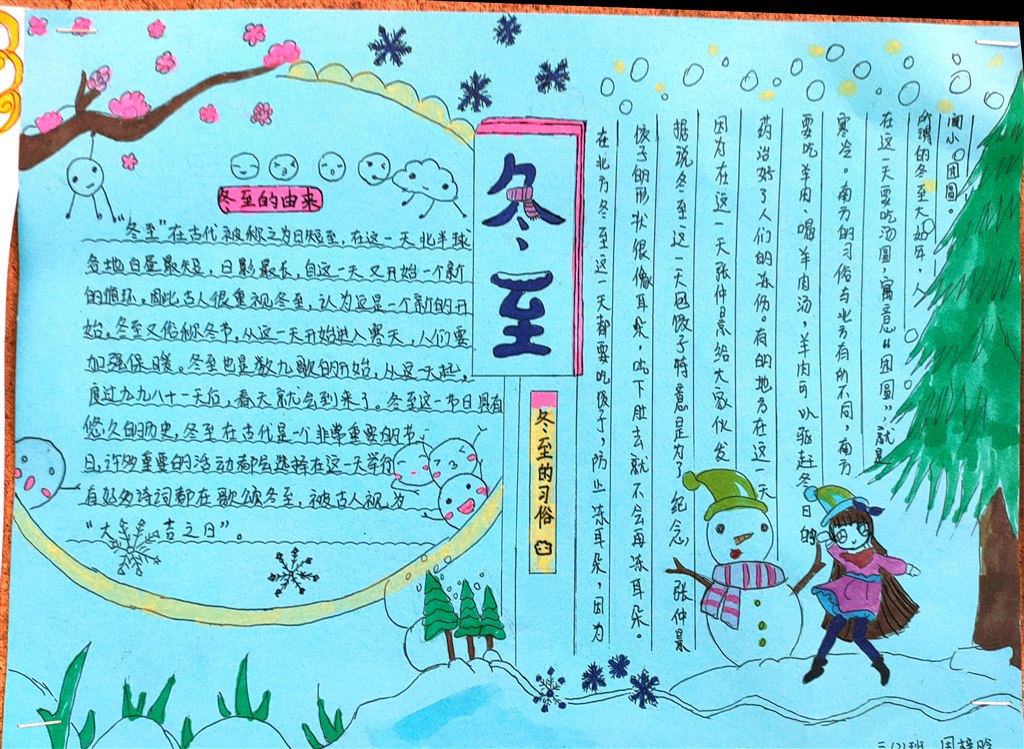 冬至
冬至的由来
“冬至”在古代被称之为日短至，在这一天北半球
各地白昼最短，日影最长，自这一天又开始一个新
的循环。因此古人很重视冬至，认为这是一个新的开
始。冬至又俗称冬节，从这一天开始进入寒天，人们要
加强保暖。冬至也是数九歌的开始，从这一天起，
度过九九八十一天后，春天就会到来了。冬至这一节日具有
悠久的历史，冬至在古代是一个非常重要的节
日，许多重要的活动都会选择在这一天举行
有好多诗词都在歌颂冬至，被古人视为
“大吉之日”。
冬至的习俗
在北方冬至这一天都要吃饺子，防止冻耳朵，因为
饺子的形状很像耳朵，吃下肚去就不会再冻耳朵。
据说冬至这一天因饺子特意是为了纪念，张仲景
因为在这一天张仲景给大家伙发
药治好了人们的冻伤。有的地方在这一天
要吃羊肉，喝羊肉汤，羊肉可以驱赶冬日的
寒冷。南方的习俗与北方有所不同，南方
在这一天要吃汤圆，寓意“团圆”，就是
所谓的冬至大如年，人
间小团圆。
三(2)班